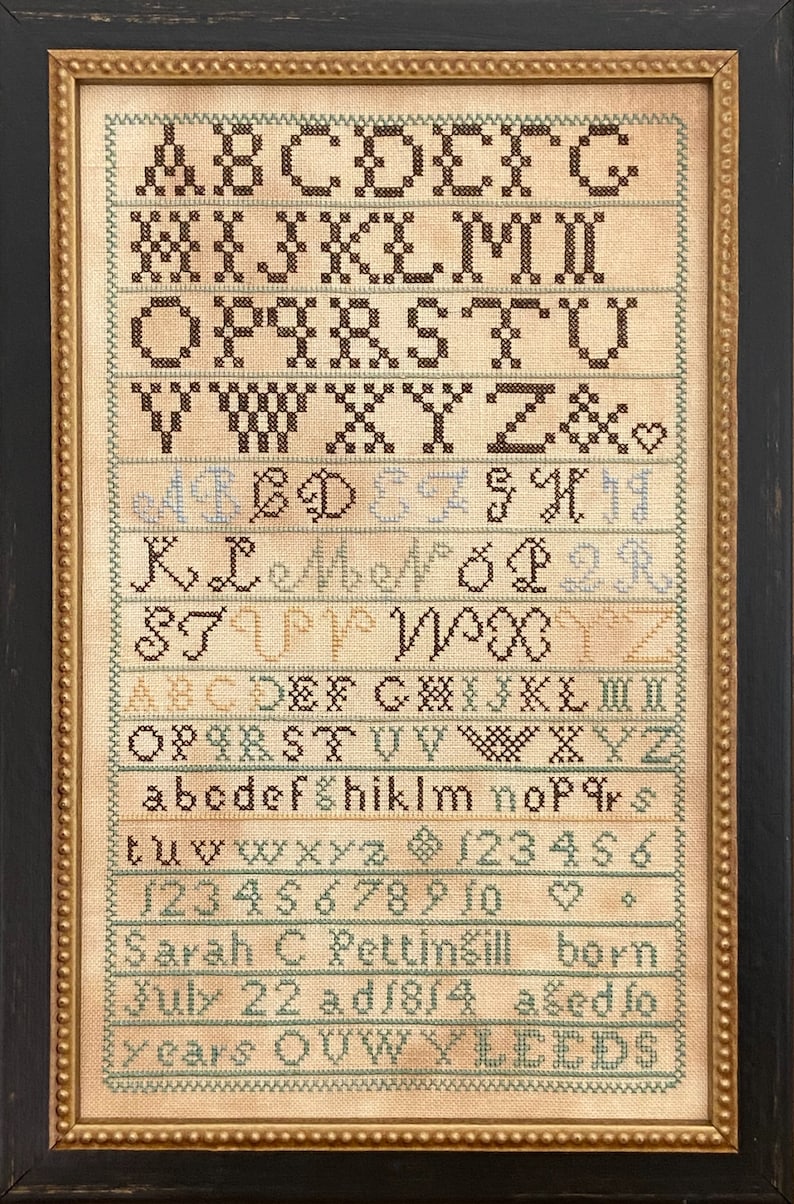 A B C D E F G
H I J K L M N
O P Q R S T U
V W X Y Z &
A B C D E F G H I J
K L M N O P Q R
S T U V W X Y Z
A B C D E F G H I J K L M N
O P Q R S T U V W X Y Z
a b c d e f g h i k l m n o p q r s
t u v w x y z 1 2 3 4 5 6
1 2 3 4 5 6 7 8 9 10
Sarah C Pettingill born
July 22 ad 1814 aged 10
years O U W Y L E E D S